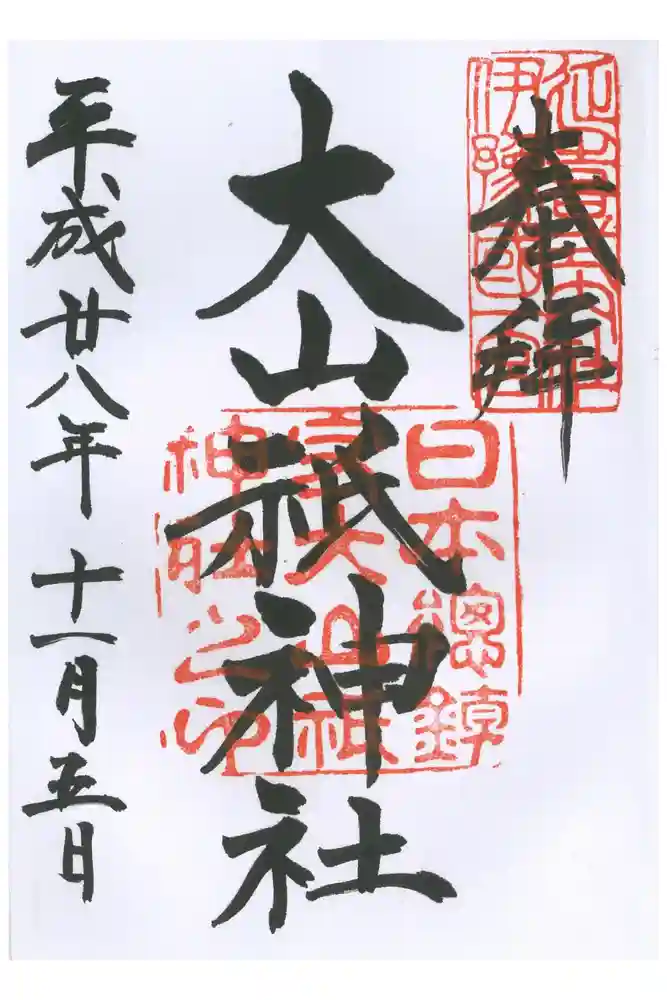 延喜式内社
伊豫國一宮
奉拝
日本總鎮
守大山祇
神社之印
大山祇神社
平成廿八年十一月五日